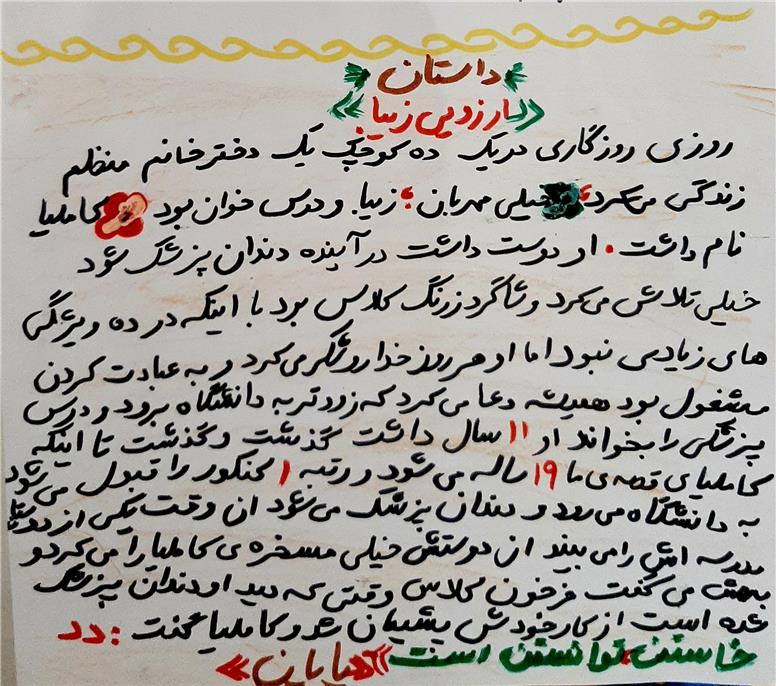 داستان
«ارزویی زیبا»
روزی روزگاری در یک ده کوچک یک دختر خانم منظم
زندگی می‌کرد، خیلی مهربان، زیبا و درس خوان بود کاملیا
نام داشت. او دوست داشت در آینده دندان پزشک شود
خیلی تلاش می‌کرد و شاگرد زرنگ کلاس بود با اینکه در ده ویژگی
های زیادی نبود اما او هر روز خدا رو شکر می‌کرد و به عبادت کردن
مشغول بود همیشه دعا می کرد که زودتر به دانشگاه برود و درس
پزشکی را بخواند او ۱۱ سال داشت گذشت و گذشت تا اینکه
کاملیای قصه‌ی ما ۱۹ ساله می شود و رتبه ۱ کنکور را قبول می شود
به دانشگاه می رود و دندان پزشک می شود ان وقت یکی از دوستا
مدرسه اش را می بیند از دوستش خیلی مسخره ی کاملیا را می کرد و
بهش می گفت فرخون کلاس وقتی که دید او دندان پزشک
شده است از کار خودش پشیمان شد و کاملیا گفت: ((
خاستن، توانستن است)) «پایان»